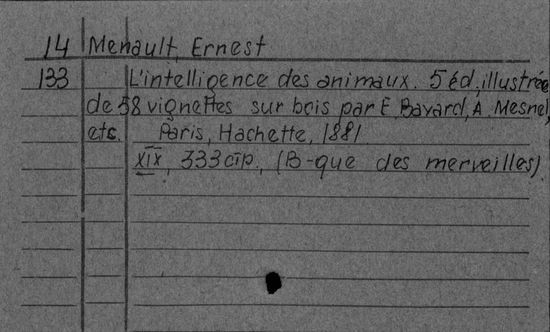 14 Menault, Ernest
133 L'intelligence des animaux. 5 éd, illustrée
de 58 vignettes sur bois par E. Bayard, A. Mesnel,
etc. Paris, Hachette, 1881
XIX, 333 стр., (B-que des merveilles)